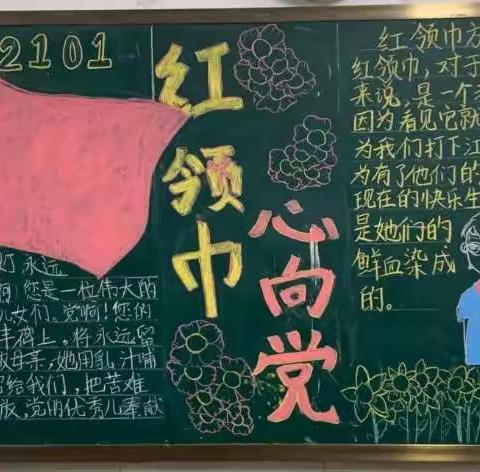 2101
红领巾
心向党
永远
您是一位伟大的
儿女们、党啊!您的
丰碑上,将永远留
母亲,她用乳汁哺
给我们,把苦难
党的优秀儿奉献
红领巾方
红领巾,对于
来说,是一个
因为看见它就
为我们打下江
为有了他们的
现在的快乐生
是她们的
鲜血染成
的。